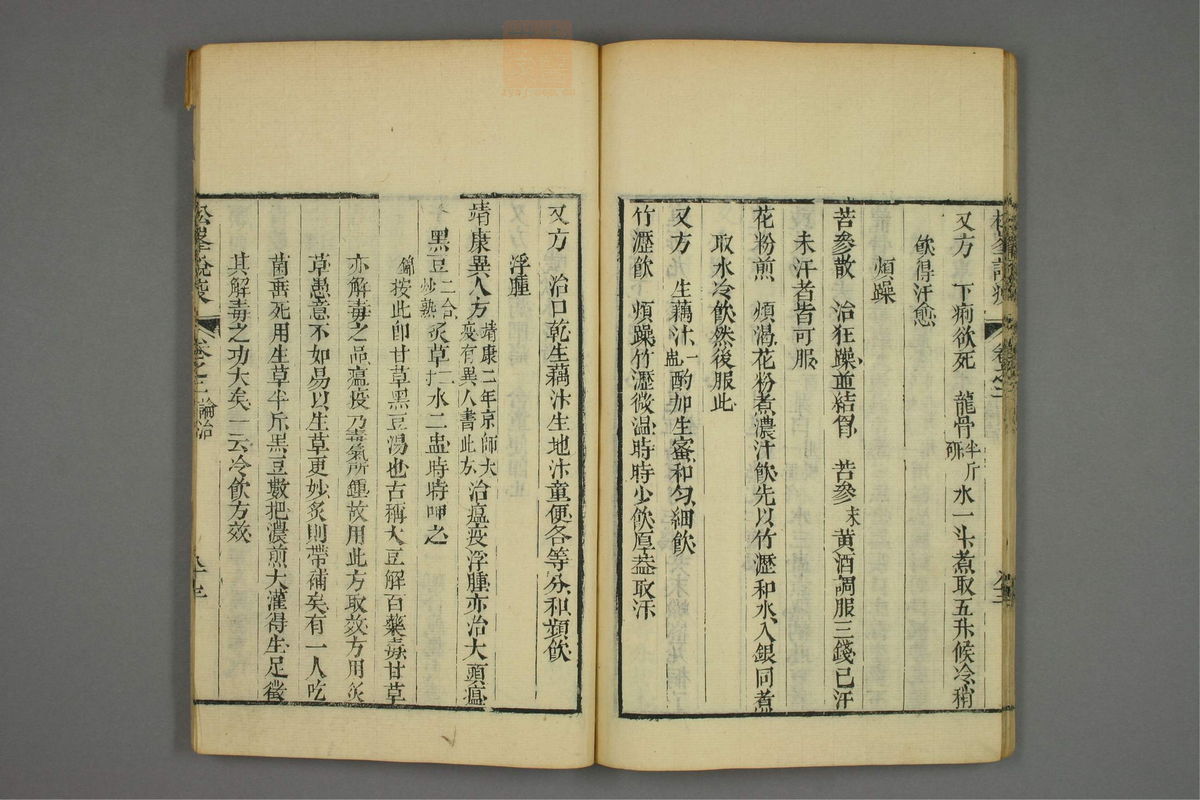 又方 下痢欲死 龍骨半斤研水一斗煮取五升候冷稍
飲得汗愈
煩躁
苦參散 治狂躁並結胷 苦參末黃酒調服三錢已汗
未汗者皆可服
花粉煎 煩渴花粉煮濃汁飲先以竹瀝和水入銀同煮
取水冷飲然後服此
又方 生藕汁一盅酌加生蜜和勻細飲
竹瀝飲 煩躁竹瀝微温時時少飲厚蓋取汗
又方 治口乾生藕汁生地汁童便各等分和頻飲
浮腫
靖康異人方靖康二年京師大疫有異人書此方治瘟疫浮腫亦治大頭瘟
黑豆二合炒熟炙草二寸水二盅時時呷之
錦按此卽甘草黑豆湯也古稱大豆解百藥毒甘草
亦解毒之品瘟疫乃毒氣所鍾故用此方取效方用炙
草愚意不如易以生草更妙炙則帶補矣有一人吃
菌垂死用生草半斤黑豆數把濃煎大灌得生足徵
其解毒之功大矣一云冷飲方效
松峯說疫 卷之二 論治